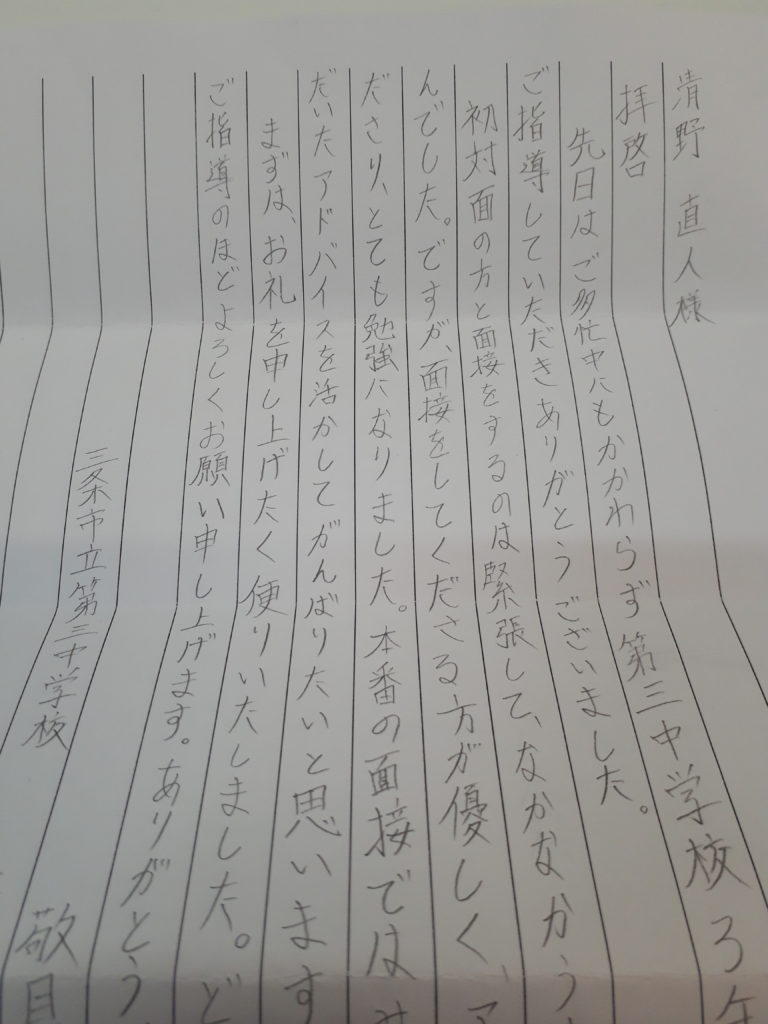 清野 直人様
拝啓
先日はご多忙中にもかかわらず第三中学校3年
ご指導していただきありがとうございました。
初対面の方と面接をするのは緊張して、なかなかう
んでした。ですが、面接をしてくださる方が優しく、ア
ださり、とても勉強になりました。本番の面接では
だいたアドバイスを活かしてがんばりたいと思います
まずは、お礼を申し上げたく便りいたしました。ど
ご指導のほどよろしくお願い申し上げます。ありがとう
敬具
三条市立第三中学校